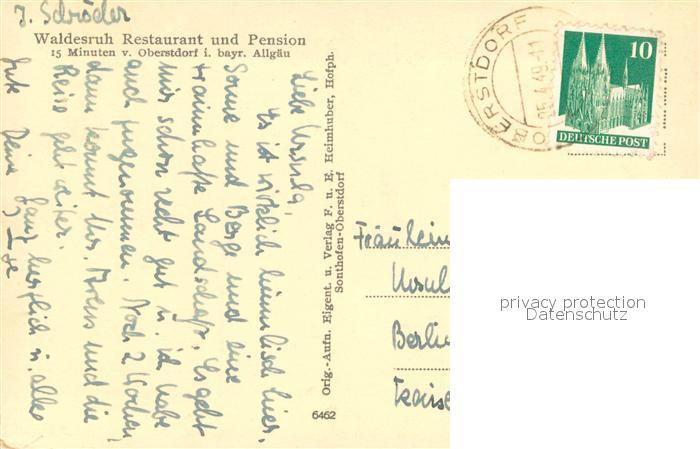 J. Schröder
Waldesruh Restaurant und Pension
15 Minuten v. Oberstdorf i. bayr. Allgäu
Liebe Ursula,
es ist wirklich himmlisch hier,
Sonne und Berge und eine
traumhafte Landschaft. Es geht
mir schon recht gut u. ich habe
auch zugenommen. Noch 2 Wochen
dann kommt Urs. und die
Reise geht weiter.
Dir ganz herzlich u. alles
Gute Deine
Orig.-Aufn. Eigent. u. Verlag F. u. E. Heimhuber, Hofph.
Sonthofen-Oberstdorf
6462
OBERSTDORF
25.4.49-11
10
DEUTSCHE POST
Fräulein
Ursul
Berlin
Kaise
privacy protection
Datenschutz